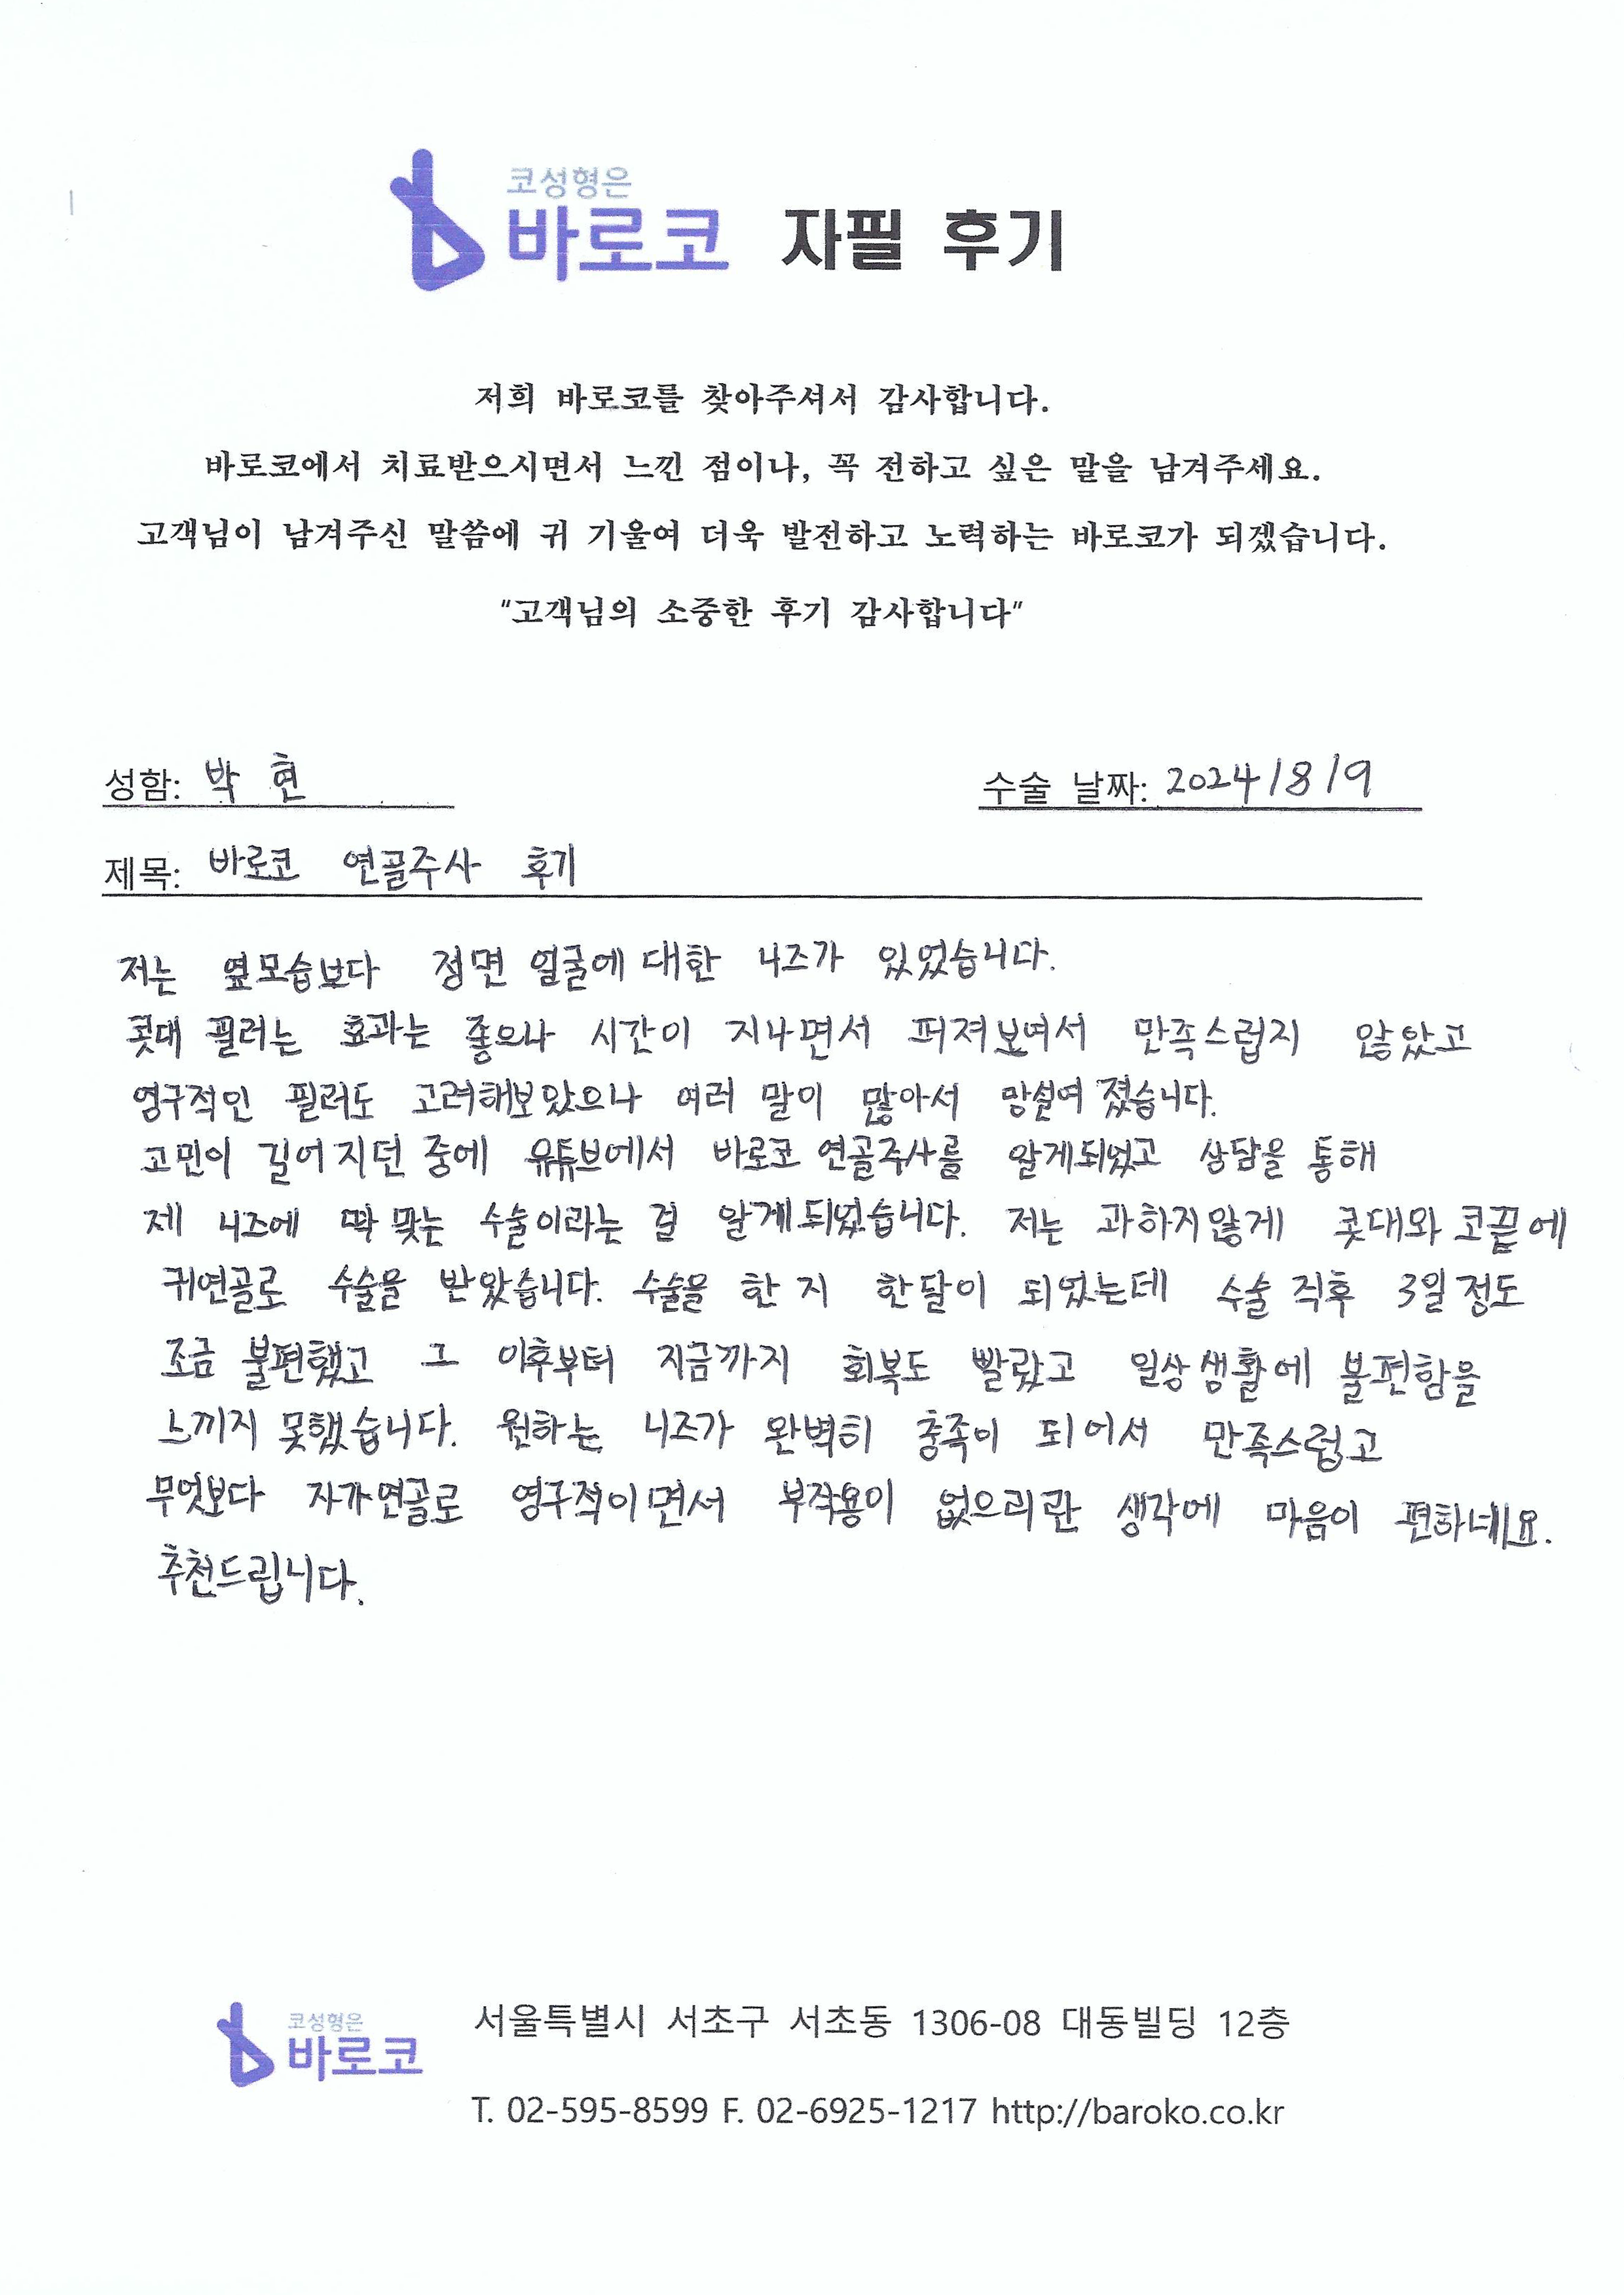 코성형은
바로코 자필 후기
저희 바로코를 찾아주셔서 감사합니다.
바로코에서 치료받으시면서 느낀 점이나, 꼭 전하고 싶은 말을 남겨주세요.
고객님이 남겨주신 말씀에 귀 기울여 더욱 발전하고 노력하는 바로코가 되겠습니다.
"고객님의 소중한 후기 감사합니다"
성함: 박 현 수술 날짜: 2024/8/9
제목: 바로코 연골주사 후기
저는 옆모습보다 정면 얼굴에 대한 니즈가 있었습니다.
콧대 필러는 효과는 좋으나 시간이 지나면서 퍼져보여서 만족스럽지 않았고
영구적인 필러도 고려해보았으나 여러 말이 많아서 망설여 졌습니다.
고민이 길어지던 중에 유튜브에서 바로코 연골주사를 알게되었고 상담을 통해
제 니즈에 딱 맞는 수술이라는 걸 알게되었습니다. 저는 과하지않게 콧대와 코끝에
귀연골로 수술을 받았습니다. 수술을 한 지 한달이 되었는데 수술 직후 3일 정도
조금 불편했고 그 이후부터 지금까지 회복도 빨랐고 일상생활에 불편함을
느끼지 못했습니다. 원하는 니즈가 완벽히 충족이 되어서 만족스럽고
무엇보다 자가연골로 영구적이면서 부작용이 없으리란 생각에 마음이 편하네요.
추천드립니다.
코성형은
바로코
서울특별시 서초구 서초동 1306-08 대동빌딩 12층
T. 02-595-8599 F. 02-6925-1217 http://baroko.co.kr